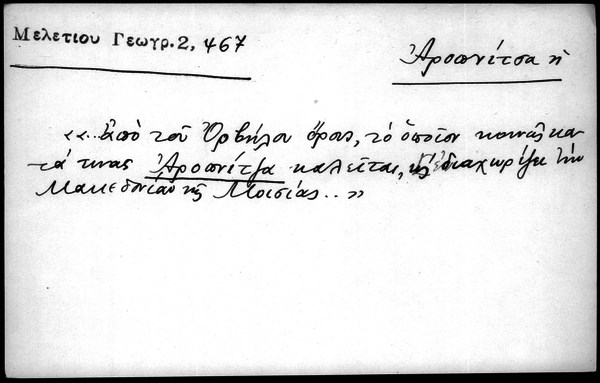 Μελετίου Γεωγρ. 2, 467
Ἀροπνίτσα ἡ
«...ἀπὸ τοῦ Ὀρβήλου ὄρους, τὸ ὁποῖον κοινῶς κα-
τά τινας Ἀροπνίτζα καλεῖται, διαχωρίζει τὴν
Μακεδονίαν τῆς Μοισίας...»